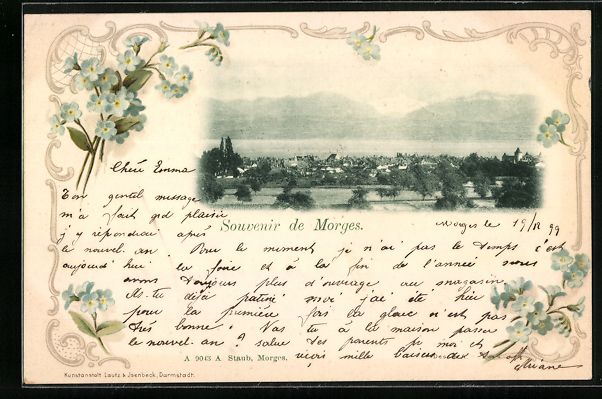 Chère Emma
Ton gentil message
m'a fait grd plaisir
Souvenir de Morges.
Morges le 19/12 99
j'y répondrai après
le nouvel-an. Pour le moment je n'ai pas le temps c'est
aujourd'hui la foire et à la fin de l'année nous
avons toujours plus d'ouvrage au magasin
As-tu déjà patiné moi j'ai été hier
pour la première fois la glace n'est pas
très bonne. Vas tu à la maison passer
le nouvel-an? salue tes parents pr moi et
A 9043 A Staub, Morges.
mille baisers de
Ariane
Kunstanstalt Lautz & Jsenbeck, Darmstadt.